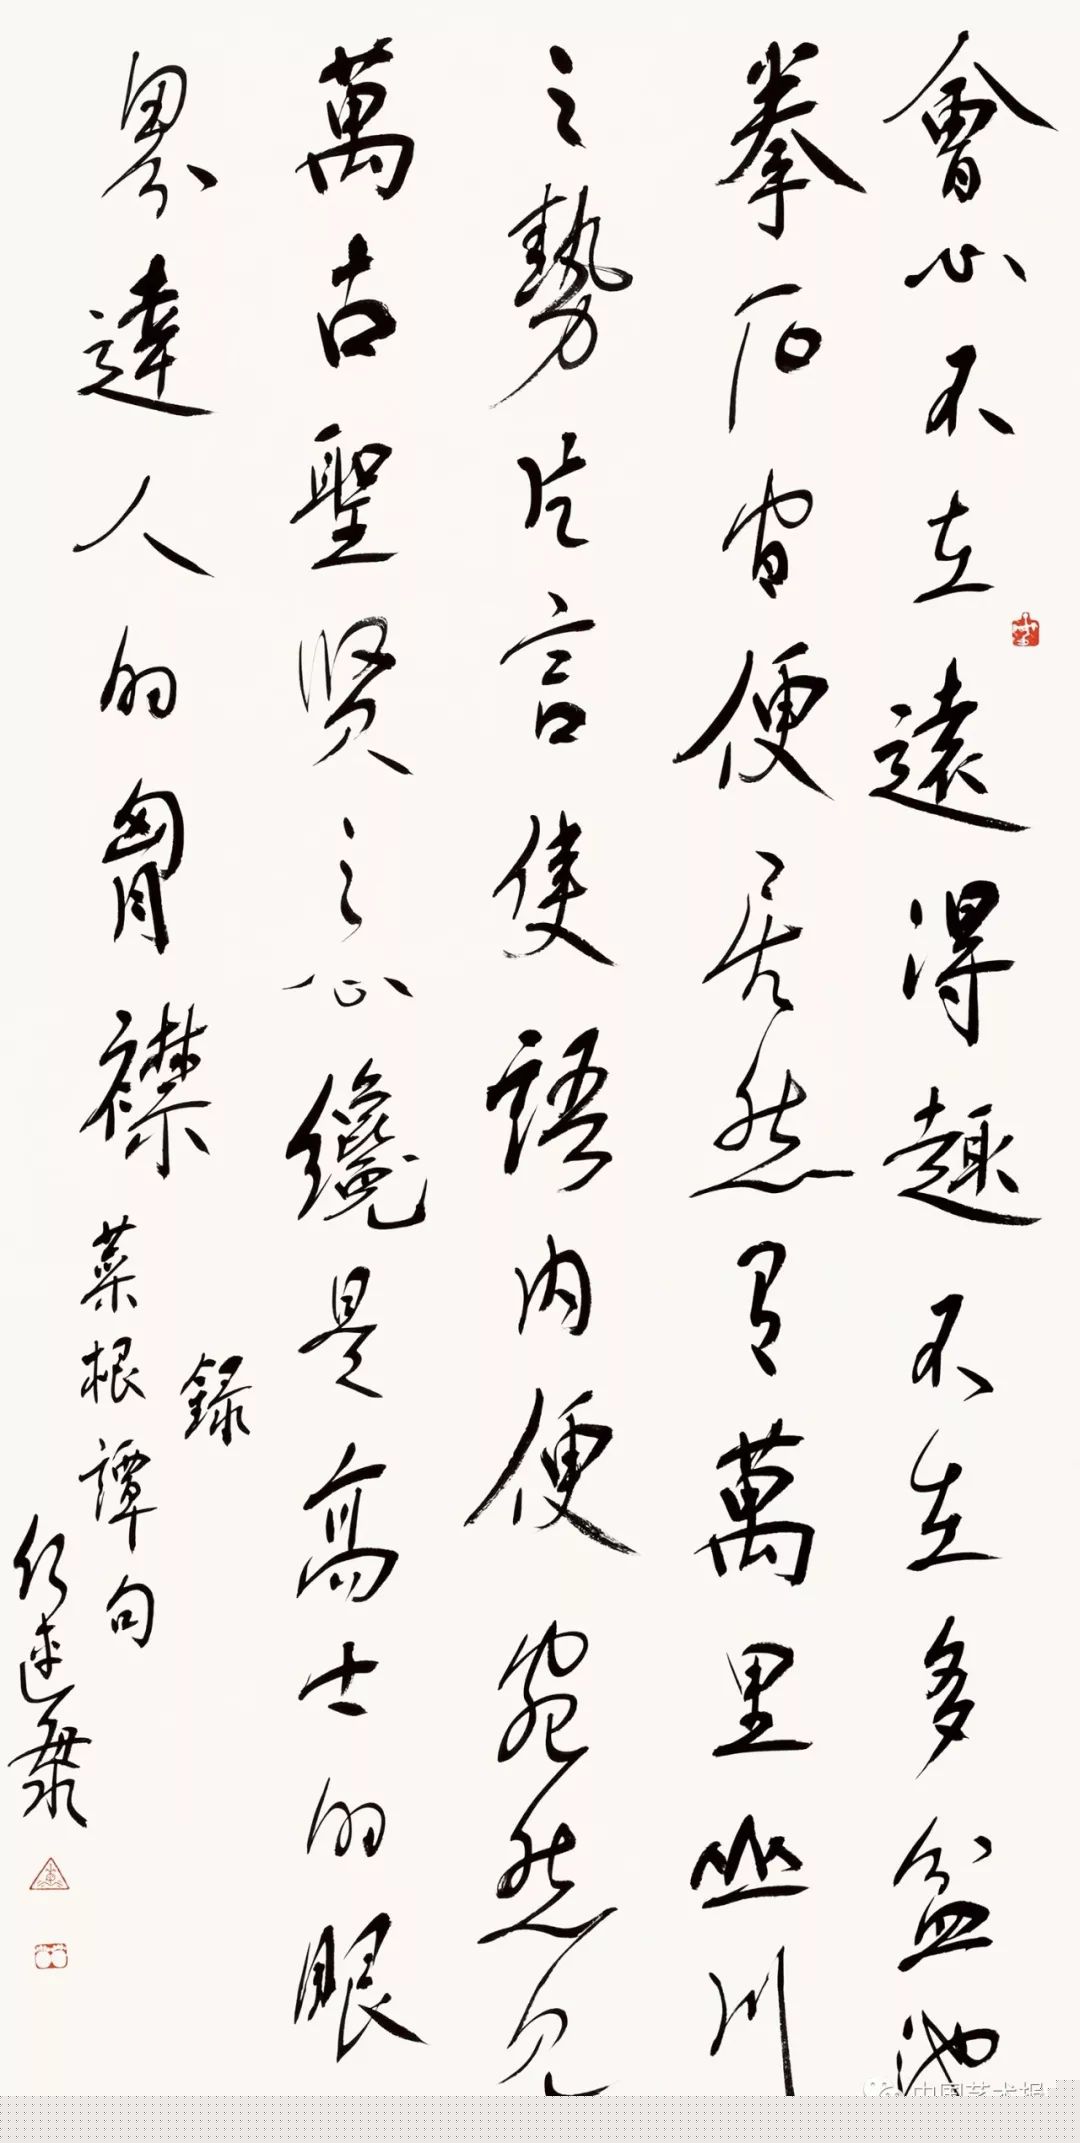 會心不在遠得趣不在多盆池
拳石间便居然有萬里山川
之勢片言隻語内便宛然見
萬古聖贤之心纔是高士的眼
界達人的胷襟
錄
菜根譚句
中国艺术报